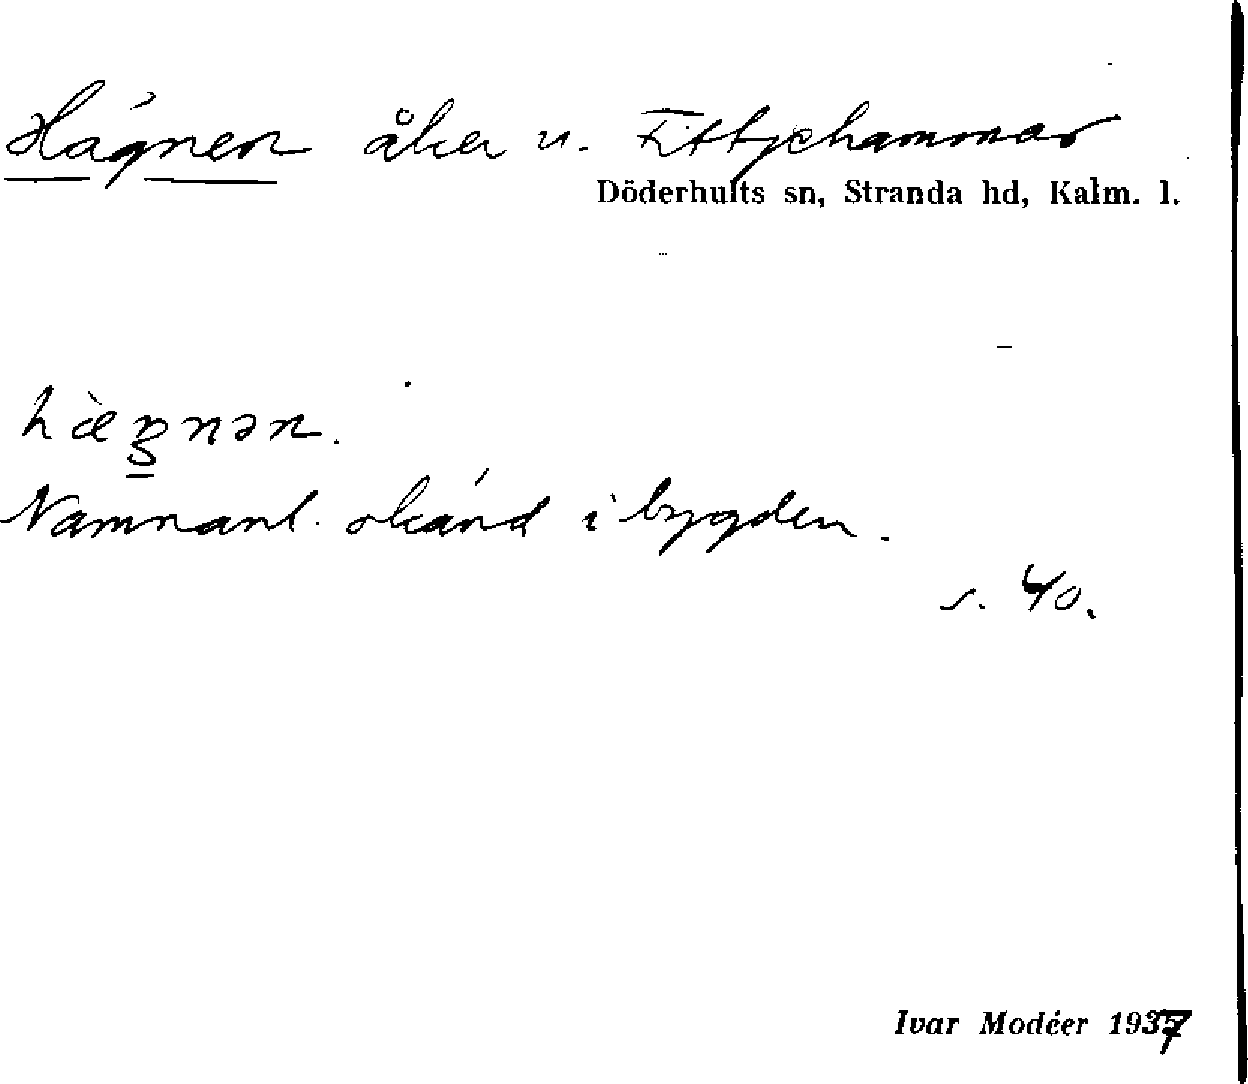 Hägnen åker u. Fittjehammar
Döderhults sn, Stranda hd, Kalm. l.
hæ̀gnən.
Namnanl. okänd i bygden.
s. 40.
Ivar Modéer 1937